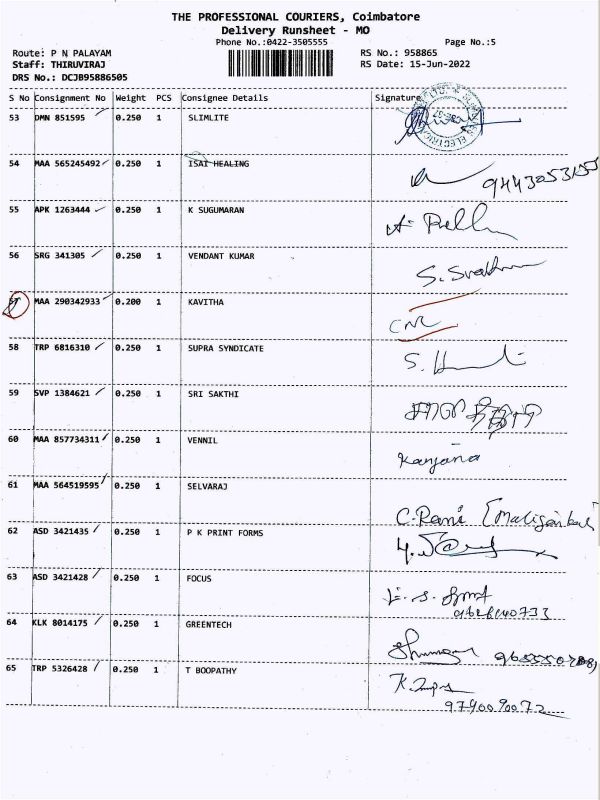 THE PROFESSIONAL COURIERS, Coimbatore
Delivery Runsheet - MO
Phone No.:0422-3505555 Page No.:5
Route: P N PALAYAM RS No.: 958865
Staff: THIRUVIRAJ RS Date: 15-Jun-2022
DRS No.: DCJB95886505
S No Consignment No Weight PCS Consignee Details Signature
53 DMN 851595 0.250 1 SLIMLITE
54 MAA 565245492 0.250 1 ISAI HEALING
55 APK 1263444 0.250 1 K SUGUMARAN
56 SRG 341305 0.250 1 VENDANT KUMAR
57 MAA 290342933 0.200 1 KAVITHA
58 TRP 6816310 0.250 1 SUPRA SYNDICATE
59 SVP 1384621 0.250 1 SRI SAKTHI
60 MAA 857734311 0.250 1 VENNIL Kanjana
61 MAA 564519595 0.250 1 SELVARAJ C. Rani
62 ASD 3421435 0.250 1 P K PRINT FORMS
63 ASD 3421428 0.250 1 FOCUS
64 KLK 8014175 0.250 1 GREENTECH
65 TRP 5326428 0.250 1 T BOOPATHY
9790090072